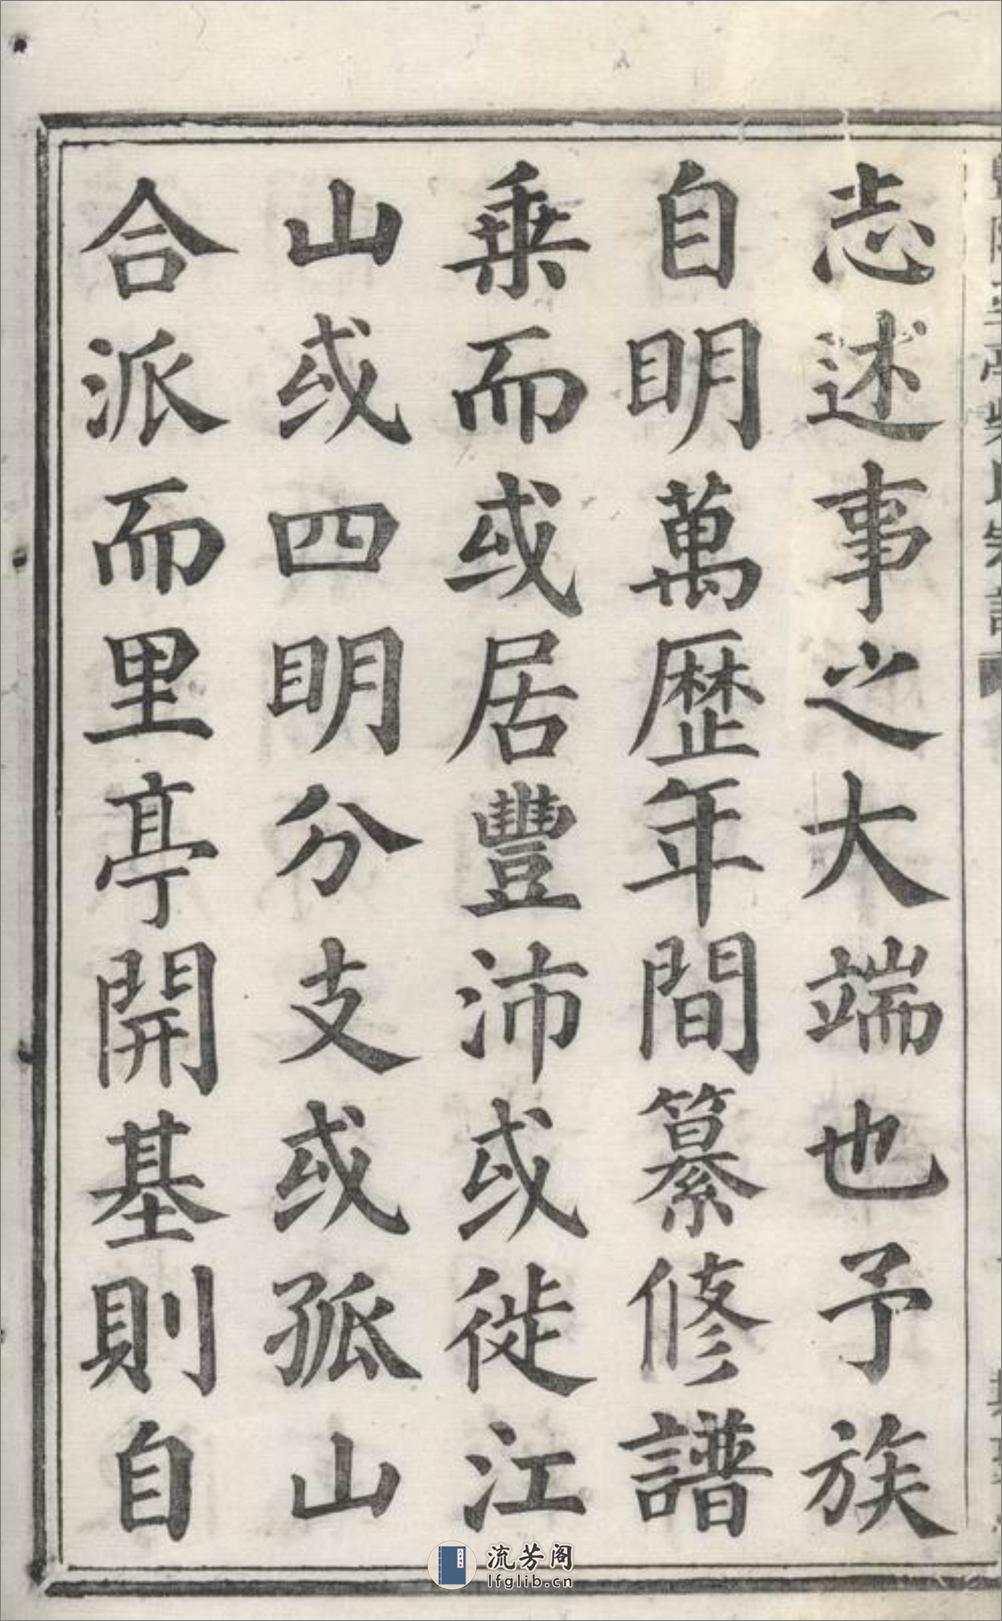 志述事之大端也予族
自明萬歷年間纂修譜
乗而或居豐沛或徙江
山或四明分支或孤山
合派而里亭開基則自
流芳阁
lfglib.cn